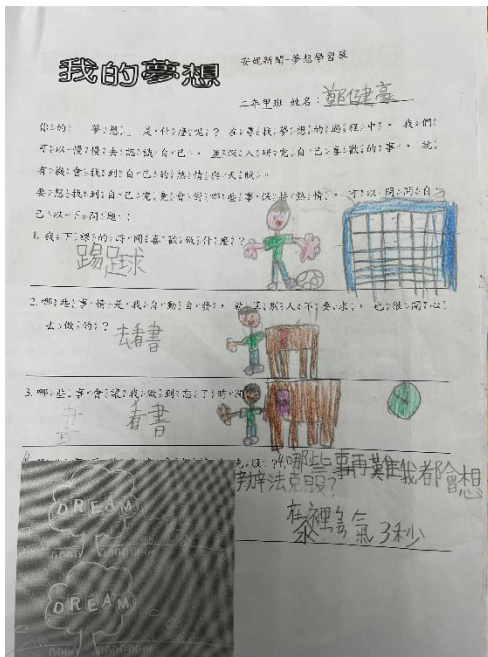 我的夢想
安妮新聞-夢想學習單
二年甲班 姓名：鄭健豪
你的「夢想」是什麼呢？在尋找夢想的過程中，我們
可以慢慢去認識自己，並深入研究自己喜歡的事，就
有機會找到自己的熱情與天賦。
要想找到自己究竟會對哪些事保持熱情，可以問問自
己以下問題：
1. 我下課的時間喜歡做什麼？
踢足球
2. 哪些事情是我自動自發，就算別人不要求，也很開心
去做的？
去看書
3. 哪些事會讓我做到忘了時間
看書
4.哪些事再難我都會想
辦法克服？
在 裡 氣3秒
DREAM
DREAM